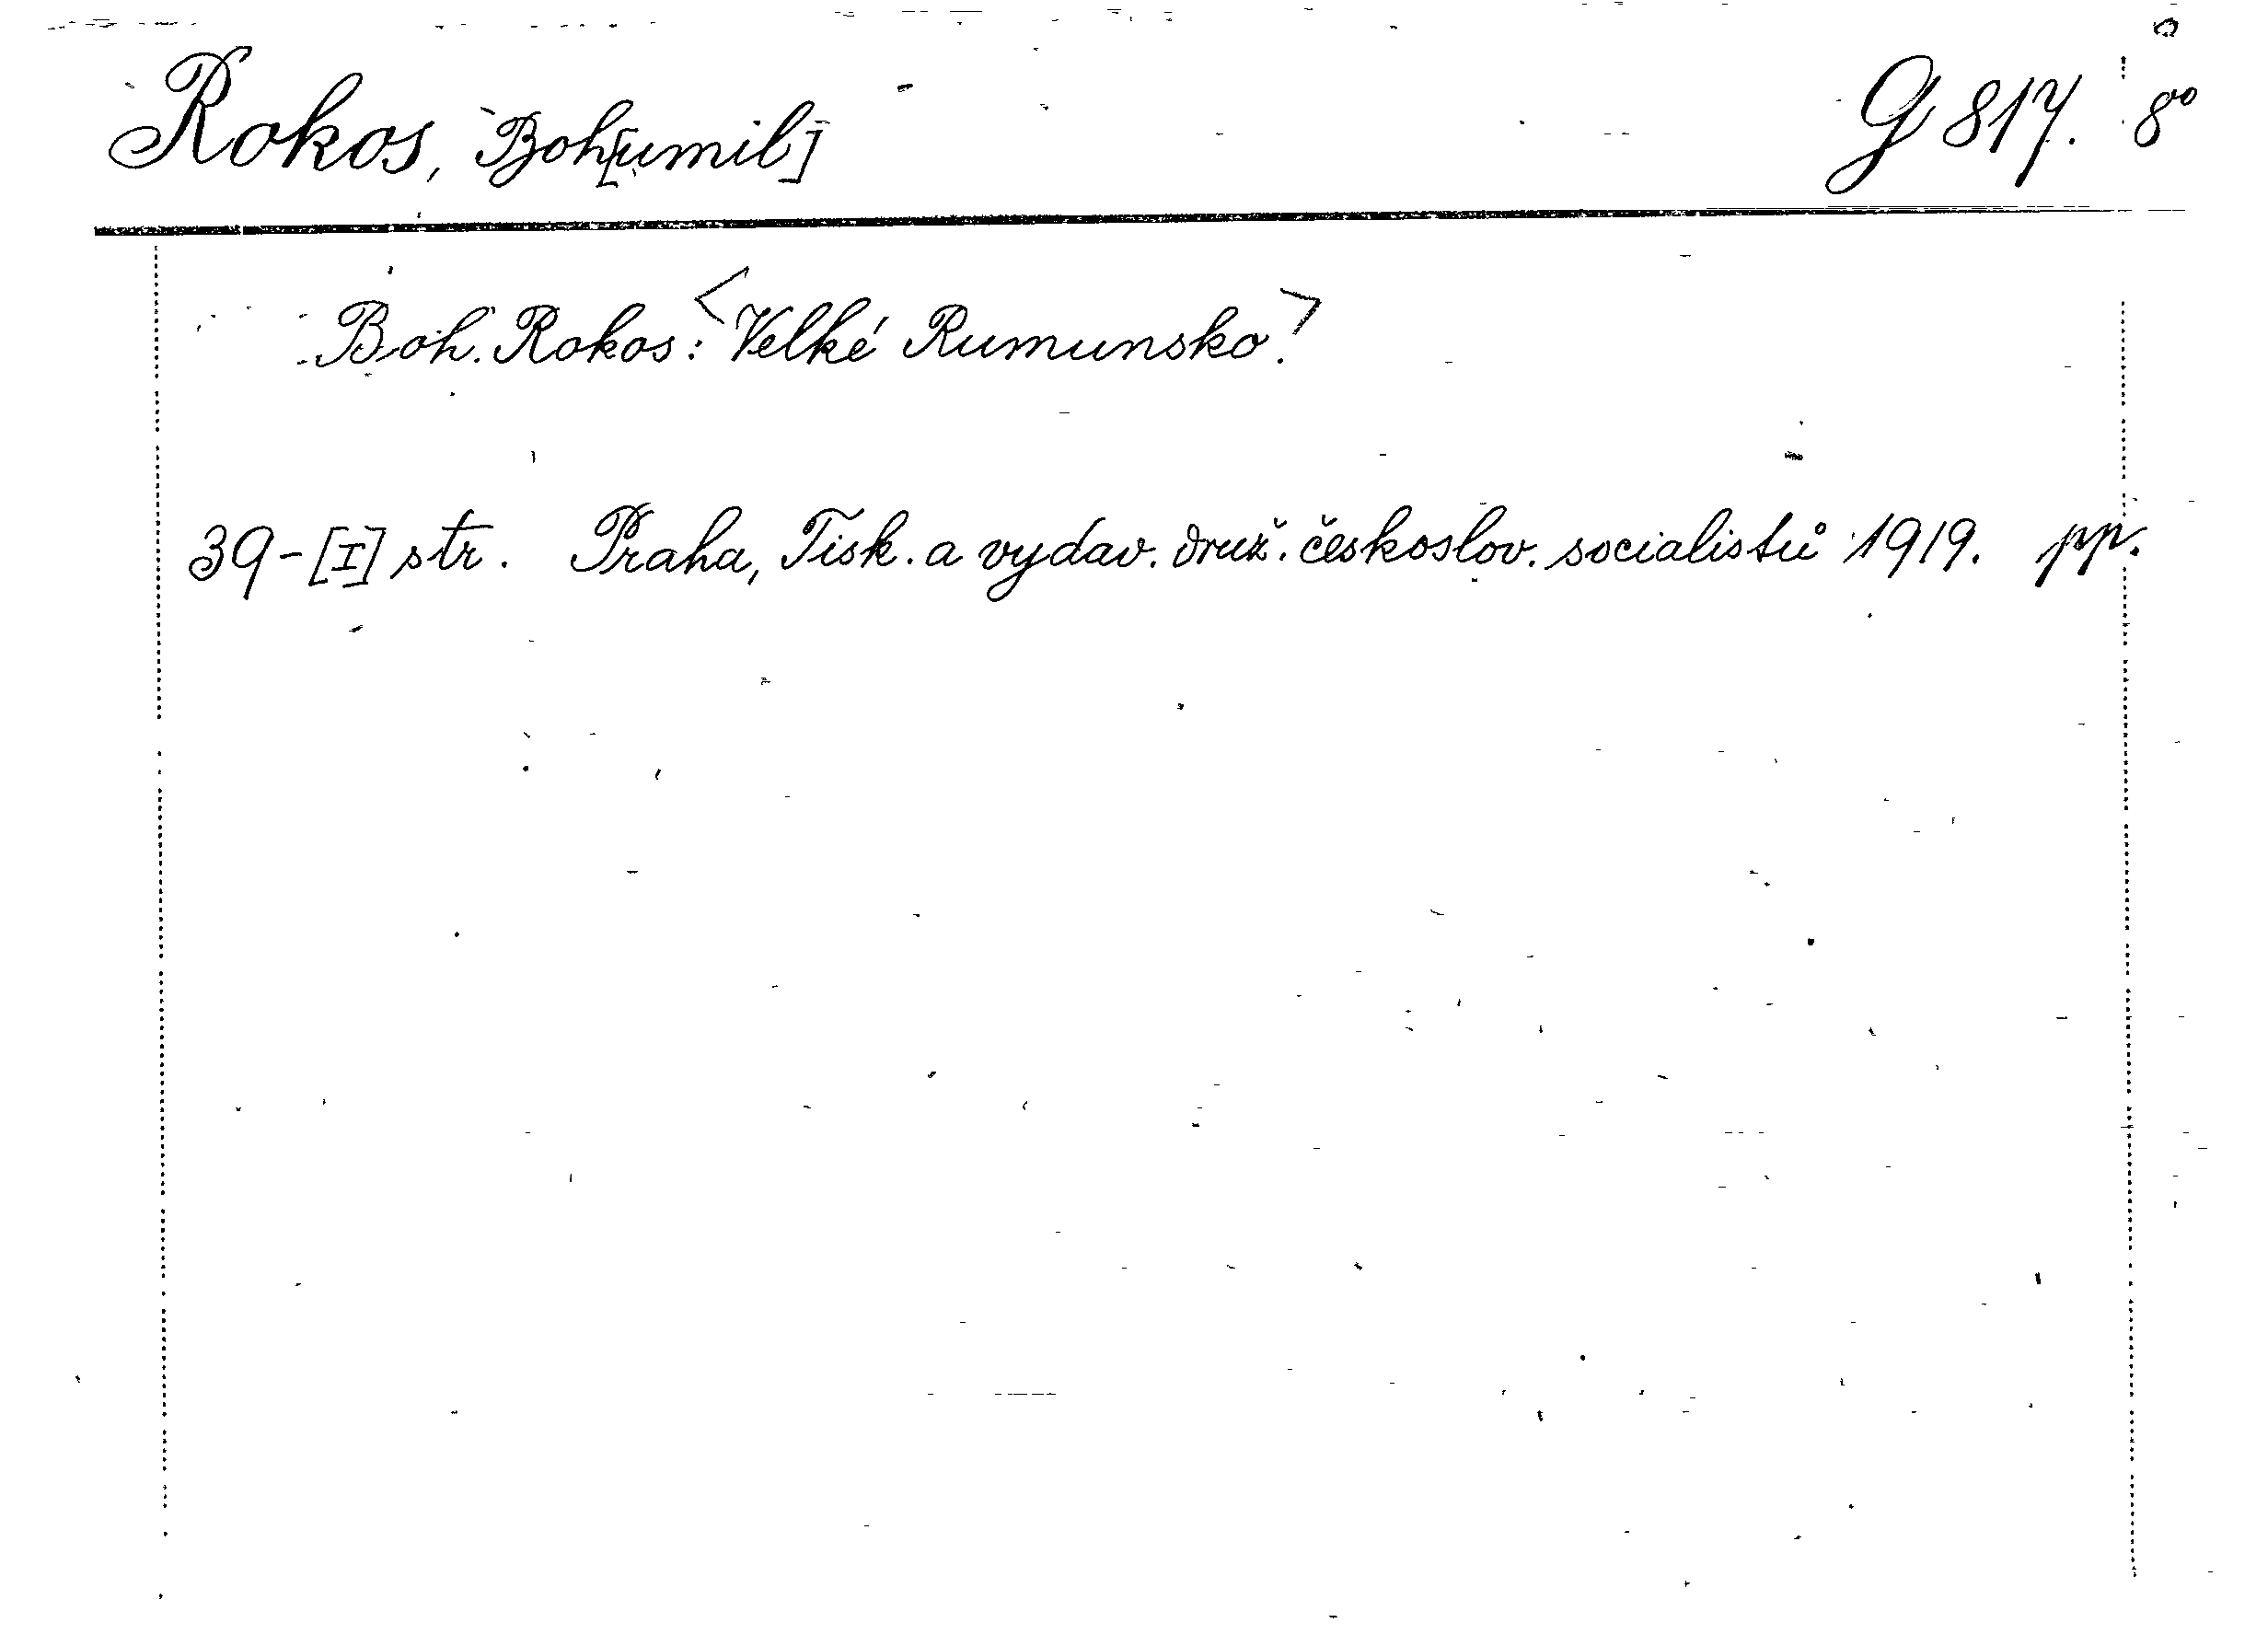 Rokos, Boh[umil] G 817. 8°
Boh. Rokos: <Velké Rumunsko.>
39-[I] str. Praha, Tisk. a vydav. druž. českoslov. socialistů 1919. pp.